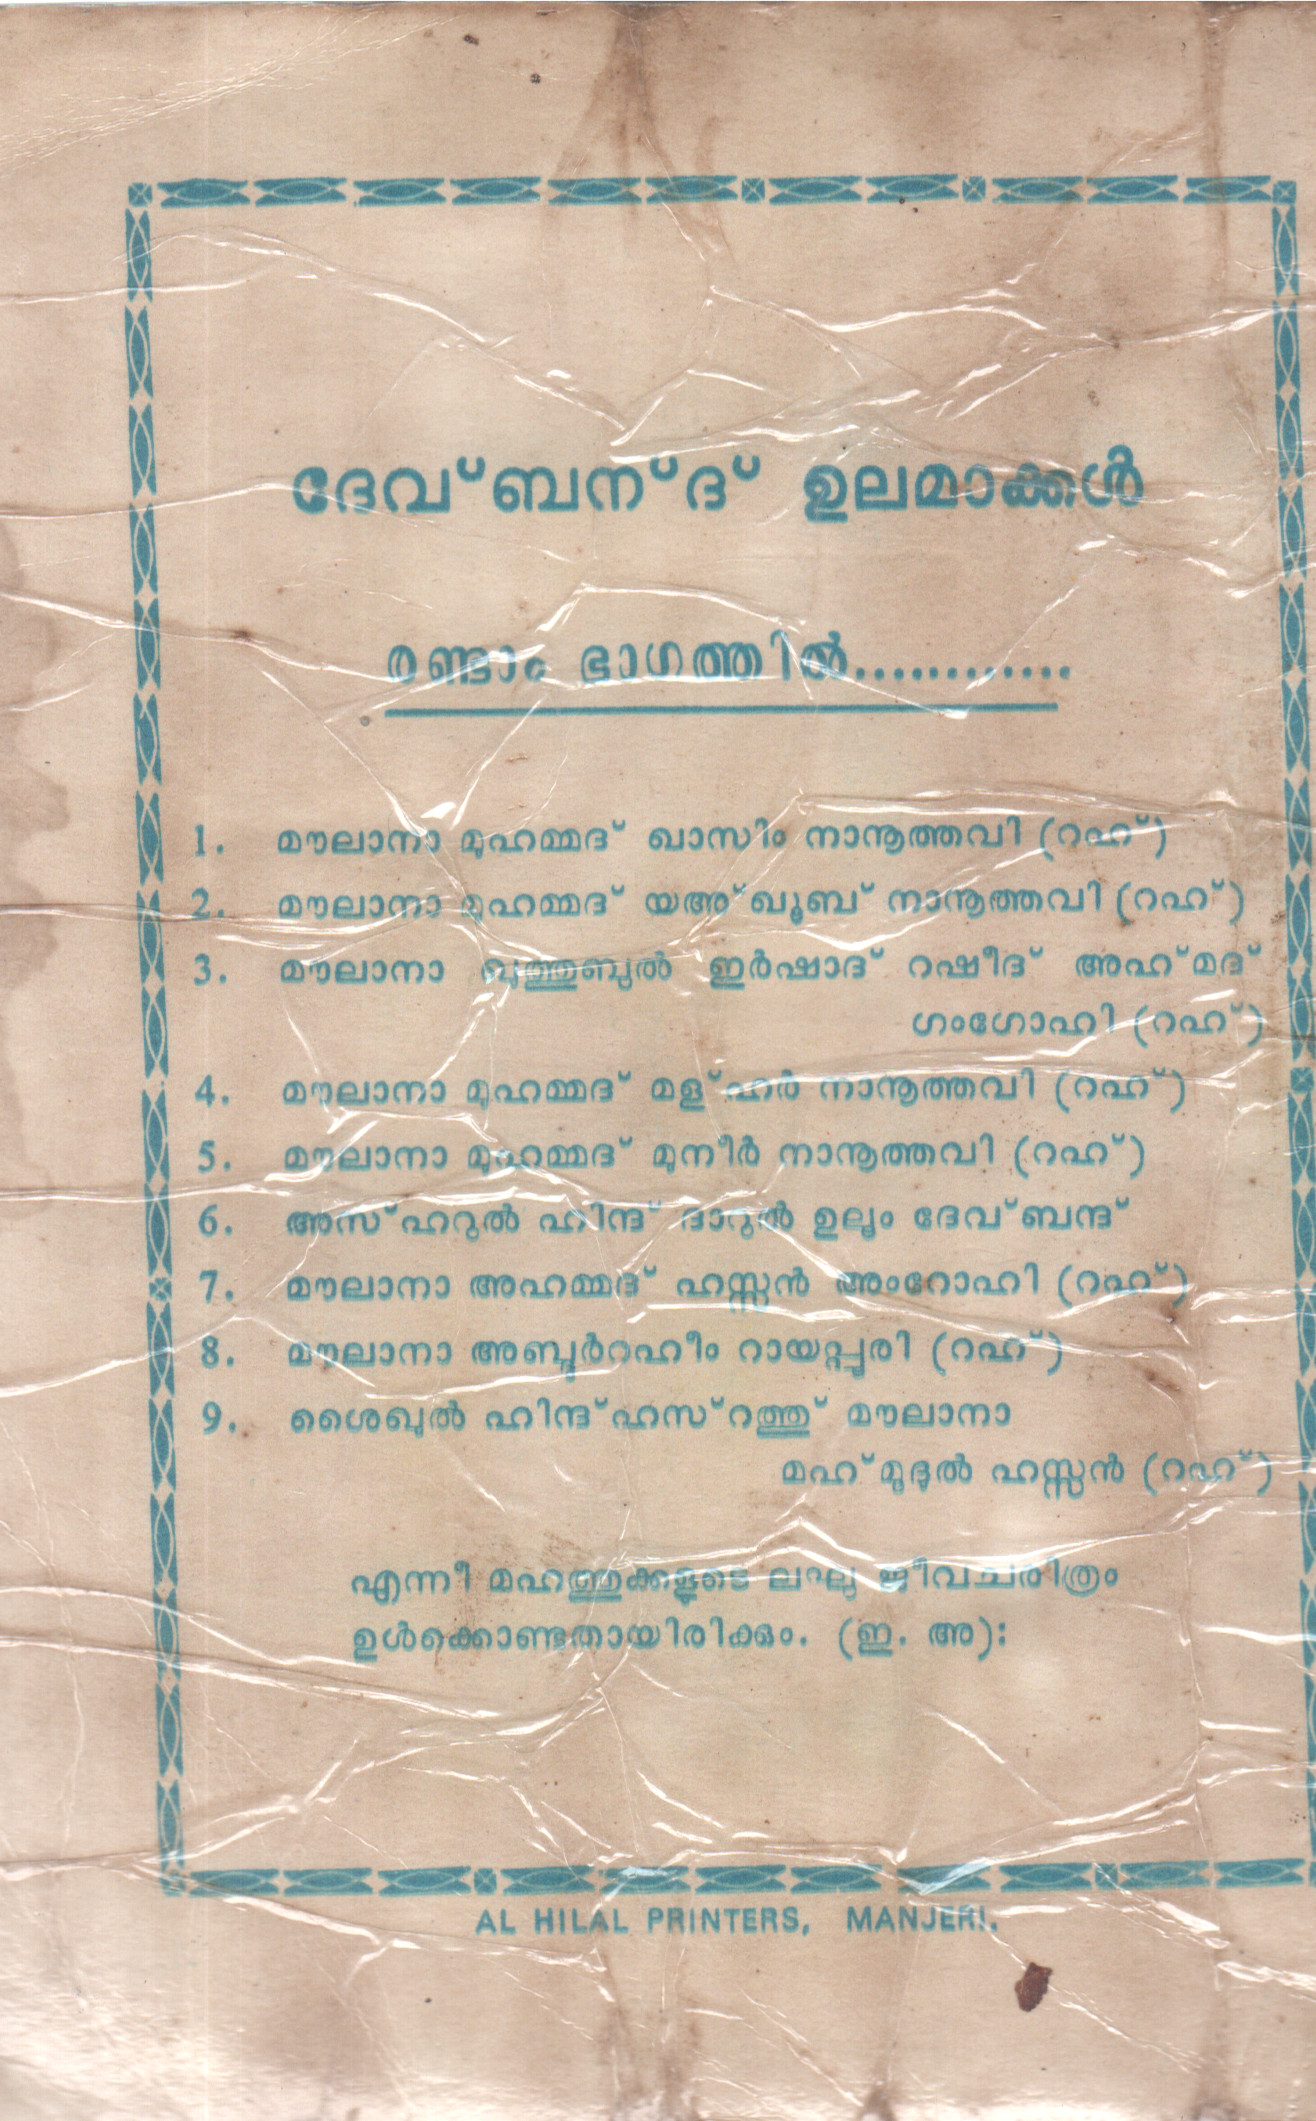 ദേവ്ബന്ദ് ഉലമാക്കൾ
രണ്ടാം ഭാഗത്തിൽ............
1. മൗലാനാ മുഹമ്മദ് ഖാസിം നാനൂത്തവി (റഹ്)
2. മൗലാനാ മുഹമ്മദ് യഅ്ഖൂബ് നാനൂത്തവി (റഹ്)
3. മൗലാനാ ഖുത്തുബുൽ ഇർഷാദ് റഷീദ് അഹ്മദ്
ഗംഗോഹി (റഹ്)
4. മൗലാനാ മുഹമ്മദ് മള്ഹർ നാനൂത്തവി (റഹ്)
5. മൗലാനാ മുഹമ്മദ് മുനീർ നാനൂത്തവി (റഹ്)
6. അസ്ഹറുൽ ഹിന്ദ് ദാറുൽ ഉലൂം ദേവ്ബന്ദ്
7. മൗലാനാ അഹമ്മദ് ഹസ്സൻ അംറോഹി (റഹ്)
8. മൗലാനാ അബ്ദുർറഹീം റായപ്പൂരി (റഹ്)
9. ശൈഖുൽ ഹിന്ദ് ഹസ്റത്ത് മൗലാനാ
മഹ്മൂദുൽ ഹസ്സൻ (റഹ്)
എന്നീ മഹത്തുക്കളുടെ ലഘു ജീവചരിത്രം
ഉൾക്കൊണ്ടതായിരിക്കും. (ഇ. അ):
AL HILAL PRINTERS, MANJERI.